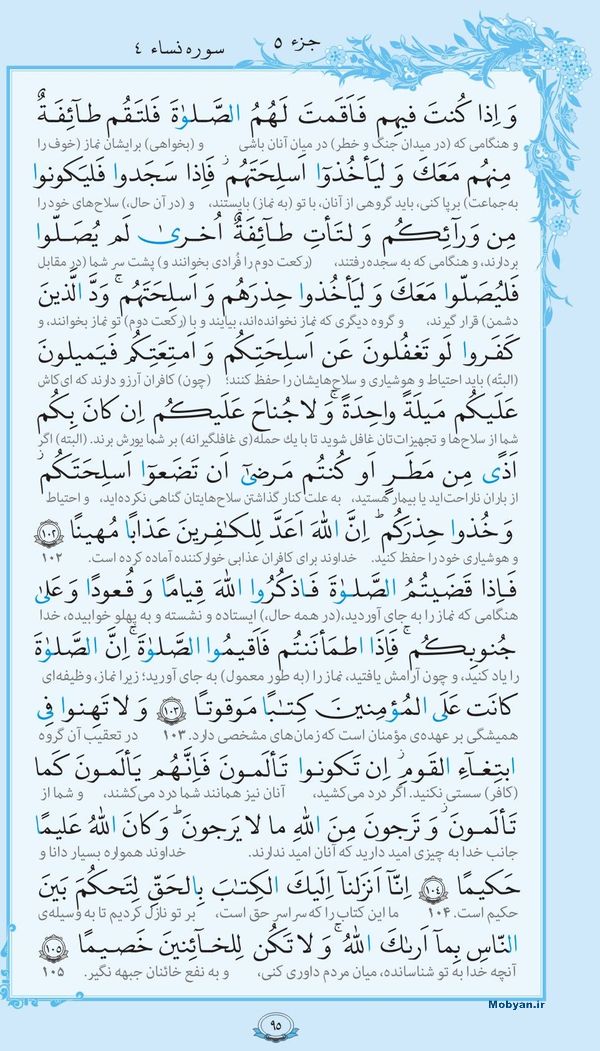 جزء ۵
سوره نساء ۴
وَ اِذا كُنتَ فيهِم فَاَقَمتَ لَهُمُ الصَّلوٰةَ فَلتَقُم طآئِفَةٌ
و هنگامی که (در میدان جنگ و خطر) در میان آنان باشی و (بخواهی) برایشان نماز (خوف را
مِنهُم مَعَكَ وَ ليَأخُذوٓا اَسلِحَتَهُم ۖ فَاِذا سَجَدوا فَليَكونوا
به‌جماعت) برپا کنی، باید گروهی از آنان، با تو (به نماز) بایستند، و (در آن حال،) سلاح‌های خود را
مِن وَرآئِكُم وَ لتَأتِ طآئِفَةٌ اُخرىٰ لَم يُصَلّوا
بردارند، و هنگامی که به سجده رفتند، (رکعت دوم را فُرادی بخوانند و) پشت سر شما (در مقابل
فَليُصَلّوا مَعَكَ وَ ليَأخُذوا حِذرَهُم وَ اَسلِحَتَهُم ۗ وَدَّ الَّذينَ
دشمن) قرار گیرند، و گروه دیگری که نماز نخوانده‌اند، بیایند و با (رکعت دوم) تو نماز بخوانند، و
كَفَروا لَو تَغفُلونَ عَن اَسلِحَتِكُم وَ اَمتِعَتِكُم فَيَميلونَ
(البتّه) باید احتیاط و هوشیاری و سلاح‌هایشان را حفظ کنند؛ (چون) کافران آرزو دارند که ای‌کاش
عَلَيكُم مَيلَةً واحِدَةً ۚ وَ لا جُناحَ عَلَيكُم اِن كانَ بِكُم
شما از سلاح‌ها و تجهیزات‌تان غافل شوید تا با یك حمله‌(ی غافلگیرانه) بر شما یورش برند. (البته) اگر
اَذًى مِن مَطَرٍ اَو كُنتُم مَرضىٰٓ اَن تَضَعوٓا اَسلِحَتَكُم ۖ
از باران ناراحت‌اید یا بیمار هستید، به علت کنار گذاشتن سلاح‌هایتان گناهی نکرده‌اید، و احتیاط
وَ خُذوا حِذرَكُم ۗ اِنَّ اللهَ اَعَدَّ لِلكٰفِرينَ عَذابًا مُهينًا ۱۰۲
و هوشیاری خود را حفظ کنید. خداوند برای کافران عذابی خوارکننده آماده کرده است. ۱۰۲
فَاِذا قَضَيتُمُ الصَّلوٰةَ فَاذكُرُوا اللهَ قِيامًا وَ قُعودًا وَ عَلىٰ
هنگامی که نماز را به جای آوردید، (در همه حال،) ایستاده و نشسته و به پهلو خوابیده، خدا
جُنوبِكُم ۚ فَاِذَا اطمَأنَنتُم فَاَقيمُوا الصَّلوٰةَ ۚ اِنَّ الصَّلوٰةَ
را یاد کنید، و چون آرامش یافتید، نماز را (به طور معمول) به جای آورید؛ زیرا نماز، وظیفه‌ای
كانَت عَلَى المُؤمِنينَ كِتٰبًا مَوقوتًا ۱۰۳ وَ لا تَهِنوا فِى
همیشگی بر عهده‌ی مؤمنان است که زمان‌های مشخصی دارد. ۱۰۳ در تعقیب آن گروه
ابتِغآءِ القَومِ ۖ اِن تَكونوا تَألَمونَ فَاِنَّهُم يَألَمونَ كَما
(کافر) سستی نکنید. اگر درد می‌کشید، آنان نیز همانند شما درد می‌کشند، و شما از
تَألَمونَ ۖ وَ تَرجونَ مِنَ اللهِ ما لا يَرجونَ ۗ وَ كانَ اللهُ عَليمًا
جانب خدا به چیزی امید دارید که آنان امید ندارند. خداوند همواره بسیار دانا و
حَكيمًا ۱۰۴ اِنّآ اَنزَلنآ اِلَيكَ الكِتٰبَ بِالحَقِّ لِتَحكُمَ بَينَ
حکیم است. ۱۰۴ ما این کتاب را که سراسر حق است، بر تو نازل کردیم تا به وسیله‌ی
النّاسِ بِمآ اَرىٰكَ اللهُ ۚ وَ لا تَكُن لِلخآئِنينَ خَصيمًا ۱۰۵
آنچه خدا به تو شناسانده، میان مردم داوری کنی، و به نفع خائنان جبهه نگیر. ۱۰۵
Mobyan.ir
۹۵